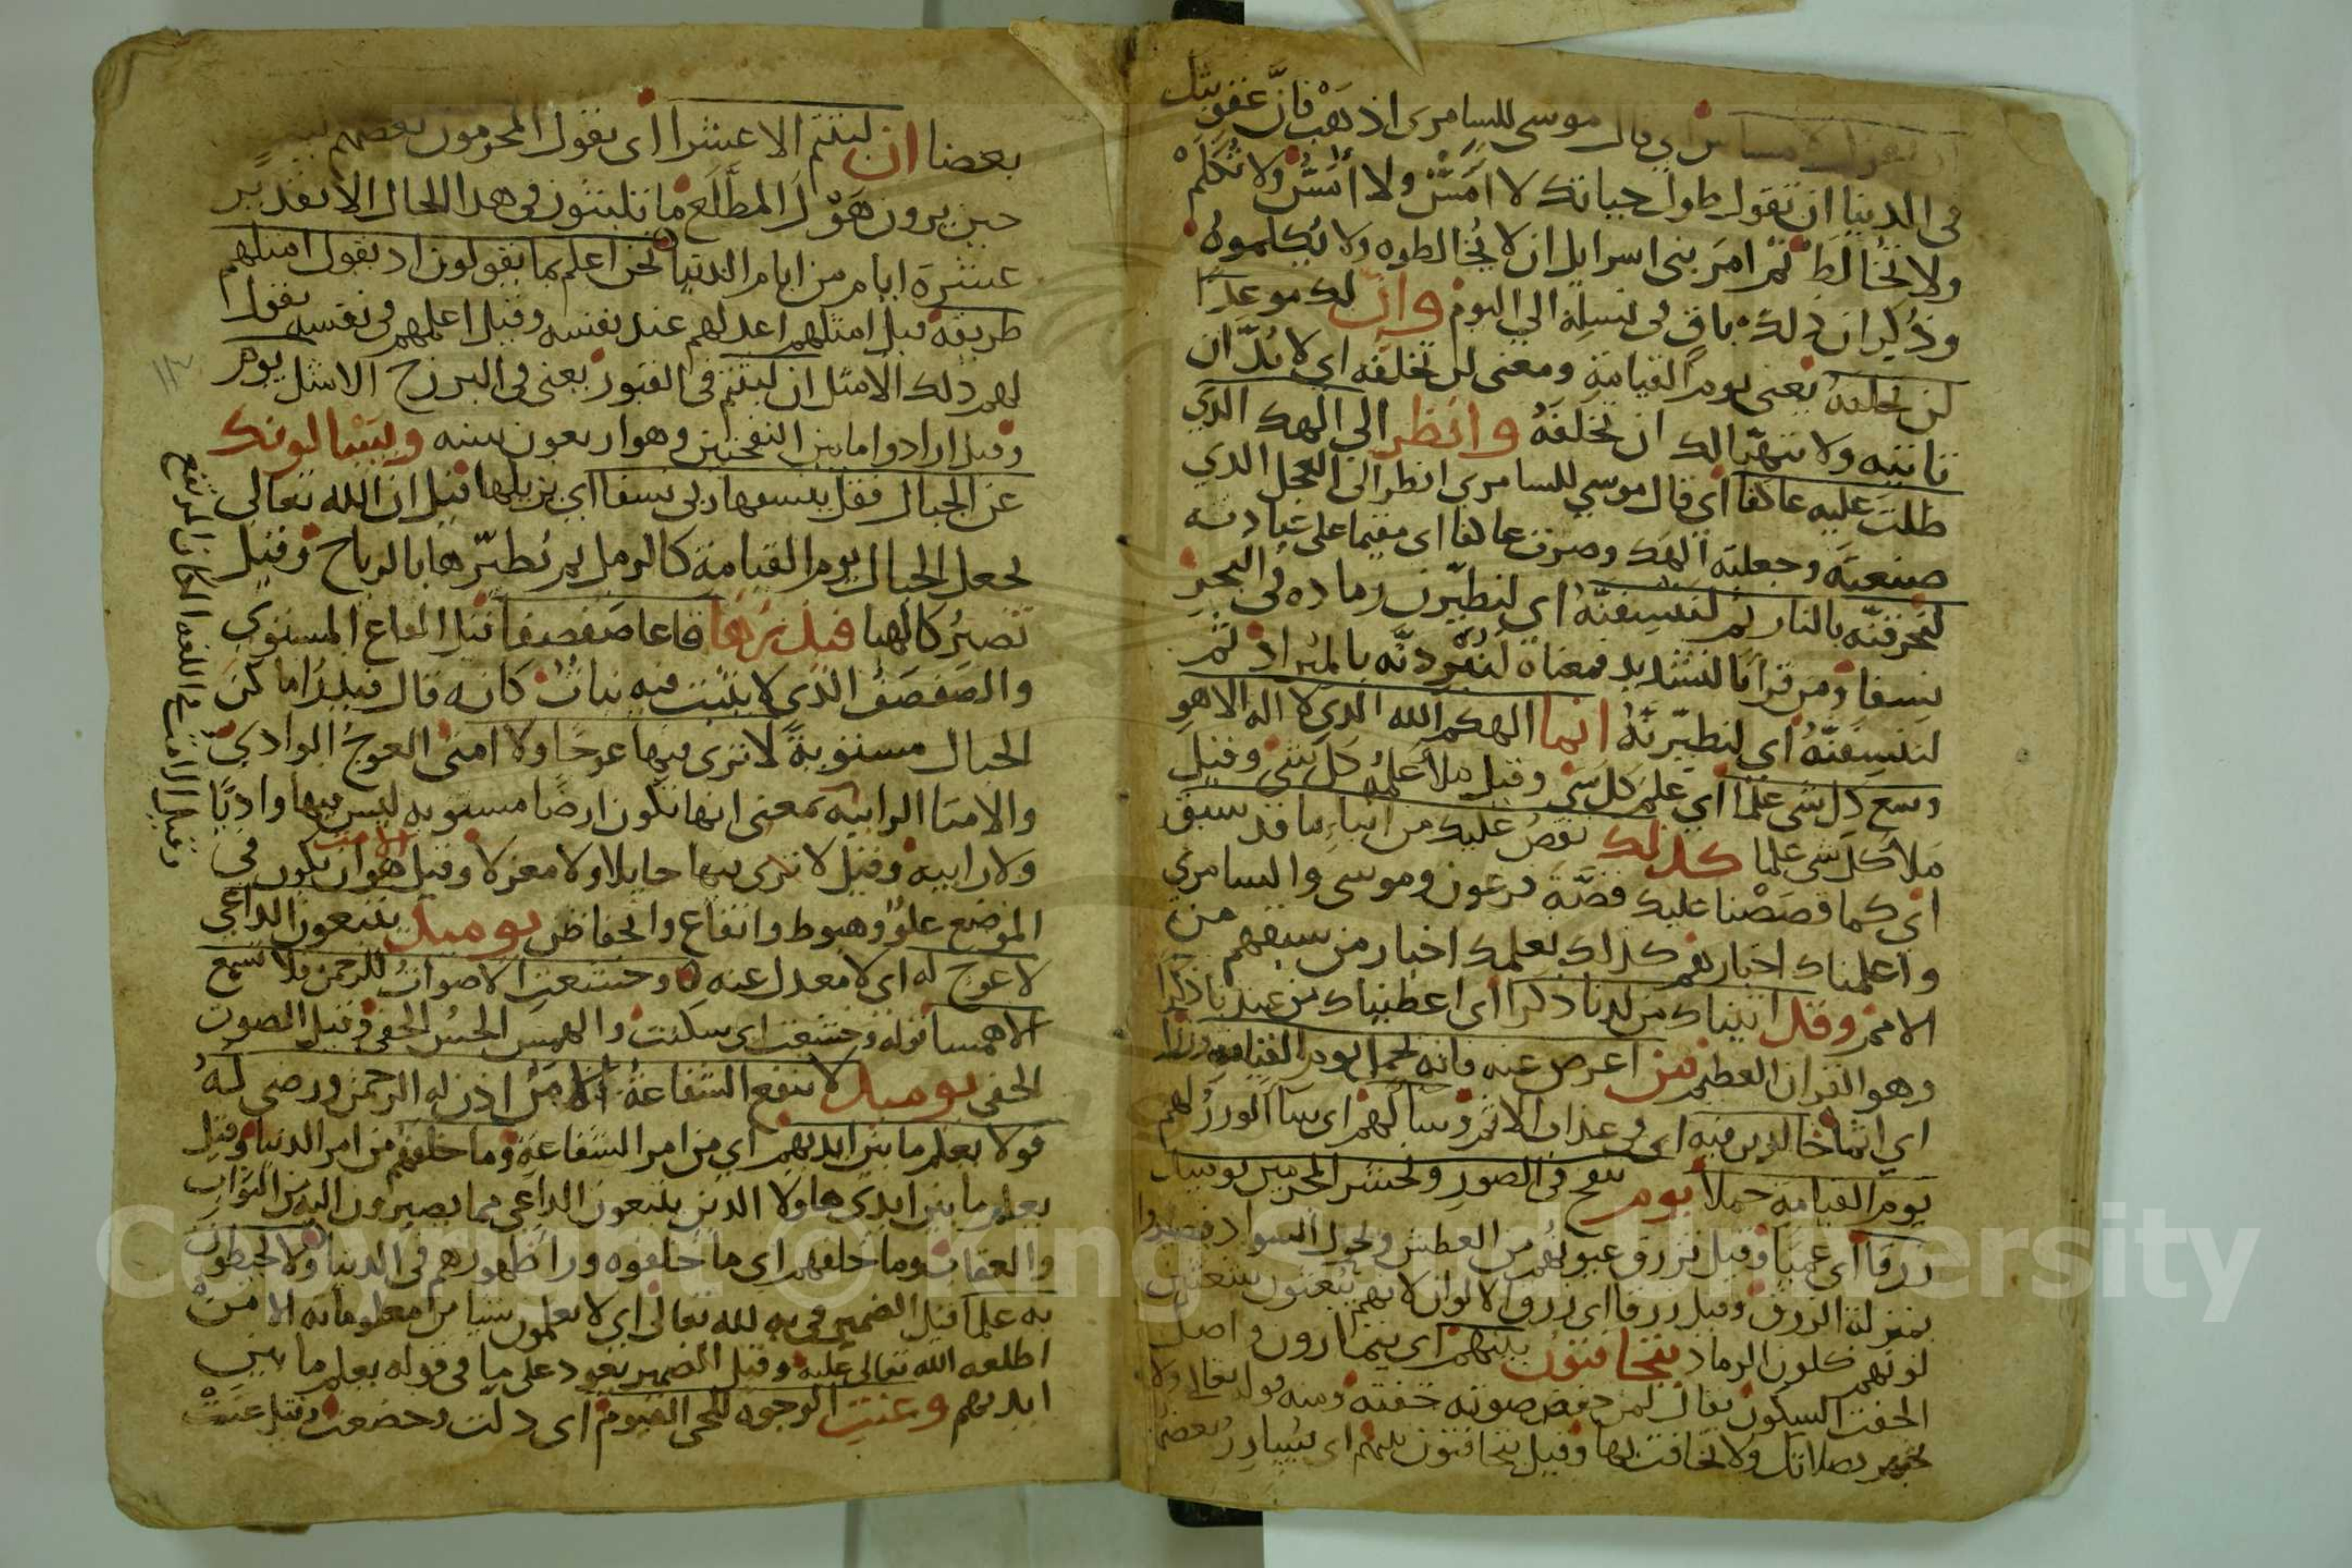 ان تقول لا مساس اي قال موسى للسامرى اذهب فانَّ عقوبتك
فى الدنيا ان تقول طول حياتك لا اَمَسّ ولا اُمَسّ ولا تُكلّم
ولا تخالط ثم امرَ بنى اسرايل ان لا يُخالطوه ولا يُكلموه
وذُكِر ان ذلك باق فى نسله الى اليوم وان لك موعدًا
لن تخلفه يعنى يوم القيامة ومعنى لن تخلفه اى لا بُدّ ان
تاتيه ولا يتهيّا لك ان تخلفهُ وانظر الى الهك الذي
ظلت عليه عاكفا اى قال موسى للسامرى انظر الى العجل الذي
صنعته وجعلته الهك وصرت عاكفا اى مقيما على عبادته
لنحرقنّه بالنار ثم لننسفنّهُ اي لنطيّرن رماده فى البحر
نسفا ومن قرا بالتشديد فمعناه لنبْردنّه بالمبراد ثم
لننسفنّهُ اي لنطيّرنّهُ انما الهكم الله الذي لا اله الا هو
وسع كل شى علما اى علم كل شي وقيل ملأ علمُه كل شي وقيل
ملأ كل شى علما كذلك نقصُ عليك من انباءِ ما قد سبق
اى كما قصصْنا عليك قصّة فرعون وموسى والسامري
واعلمناك اخبارهم كذلك نعلمك اخبار من سبقهم من
الامم وقد اتيناك من لدنا ذكرا اى اعطيناك من عندنا ذكرا
وهو القران العظيم من اعرض عنه فانه يحمل يوم القيامة وزرا
اي اثما خالدين فيه اى فى عذاب الاثم وسا لهم اى سا الوزرُ لهم
يوم القيامة حملا يوم ينفخ فى الصور ونحشر المجرمين يوميذ
زرقا اى عميًا وقيل تزرق عيونهُم من العطش
بمنزلة الزرق وقيل زرقا اى زرق الالوان لانهم يبعثون
لونهم كلون الرماد يتخافتون بينهم اى يتسارون واصل
الخفت السكون يقال لمن خفض صوته خفته ومنه قوله تعالى ولا
تجهر بصلاتك ولا تخافت بها وقيل يتخافتون بينهم اى يُسارر بعضهم
بعضا ان لبثتم الا عشرا اى يقول المجرمون بعضهم لبعضٍ
حين يرون هَوْل المطّلَع ما تلبثون فى هذا الحال الا تقدير
عشرة ايام من ايام الدنيا نحن اعلم بما يقولون اذ يقول امثلهم
طريقة قيل امثلهم اعدلهم عند نفسه وقيل اعلمهم فى نفسه يقول
لهم ذلك الامثل ان لبثتم فى القبور يعنى فى البرزخ الا مثل يوم
وقيل ارادوا ما بين النفختين وهو اربعون سنه ويسالونك
عن الجبال فقل ينسفها ربى نسفا اي يزيلها قيل ان الله تعالى
يجعل الجبال يوم القيامة كالرمل ثم تُطيّرها بالرياح وقيل
تصيرُ كالهبا فيذرها قاعا صَفصفا قيل القاع المستوي
والصَفصَفُ الذي لا ينبت فيه نباتُ كانه قال فيذرُ اماكن
الجبال مستويةً لا ترى فيها عوجًا ولا امتى العوجُ الوادي
والامتا الرابية بمعنى انها تكون ارضًا مستويه ليس فيها واديًا
ولا رابيه وقيل لا ترى فيها حايلا ولا معزلا وقيل الامت هو ان يكون فى
الموضع علوّ وهبوط وارتفاع وانخفاض يوميذ يتبعون الداعي
لا عوج له اى لا معدل عنه وخشعت الاصواتُ للرحمن فلا تسمع
الا همسا قوله وخشعت اى سكنت والهمس الحسُ الخفى وقيل الصوت
الخفى يوميذ لا تنفع الشفاعة الا من اذن له الرحمن ورضى لهُ
قولا يعلم ما بين ايديهم اي من امر الشفاعة وما خلفهم من امر الدنيا وقيل
يعلم ما بين ايدى هاولا الذين يتبعون الداعى مما يصيرون اليه من الثواب
والعقاب وما خلفهم اى ما خلفوه ورا ظهورهم فى الدنيا ولا يحيطون
به علما قيل الضمير فى به لله تعالى اي لا يعلمون شيا من معلوماته الا من
اطلعه الله تعالى عليه وقيل الضمير يعود على ما فى قوله يعلم ما بين
ايديهم وعنت الوجوه للحى القيوم اى ذلت وخضعت وقيل عنت
وقيل الامت فى اللغه المكان المرتفع
١١٣
Copyright © King Saud University